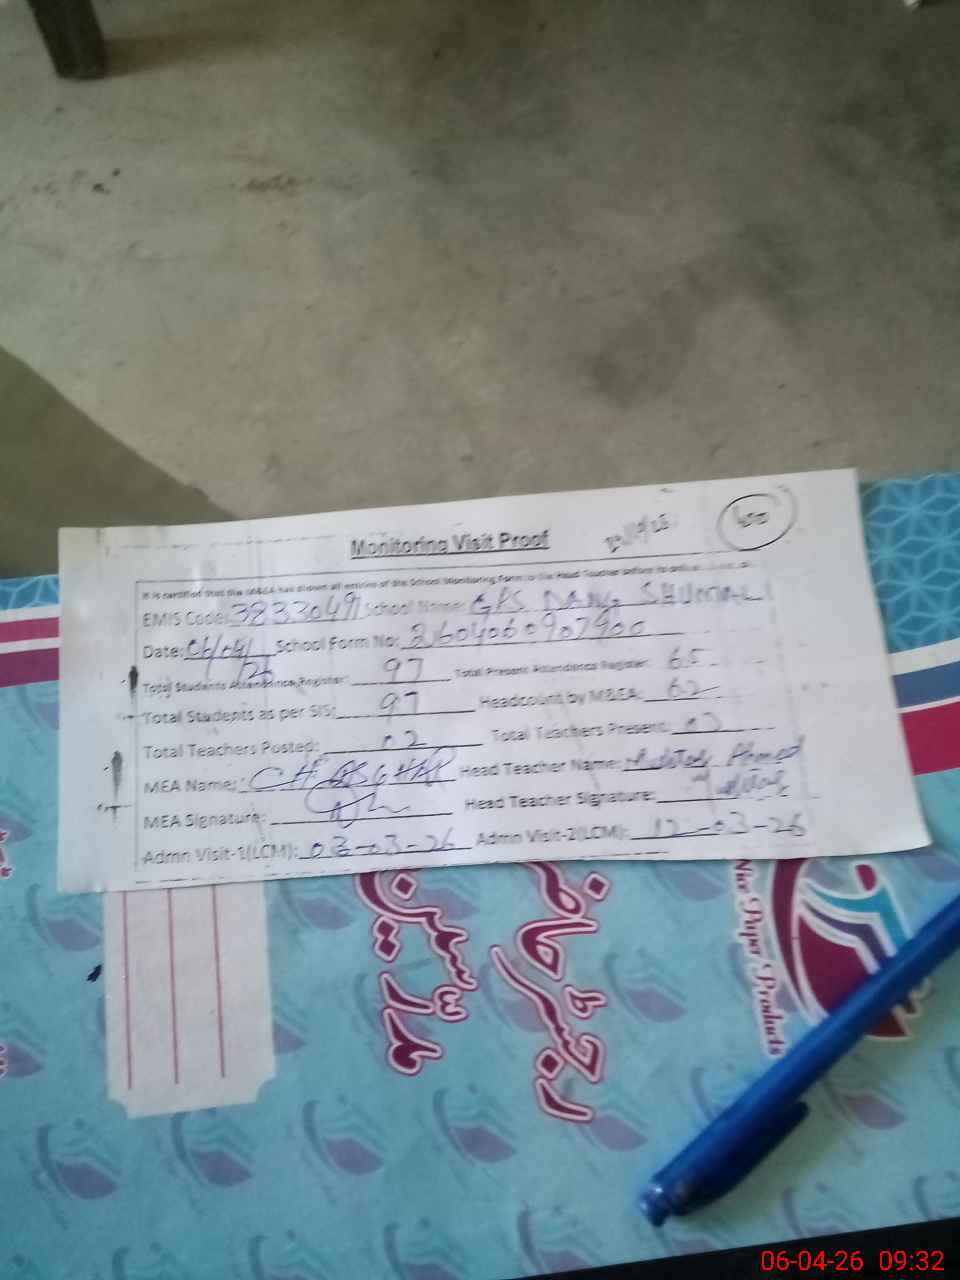 Monitoring Visit Proof
It is certified that the M&EA has shown all entries of the School Monitoring Form to the Head Teacher before
EMIS Code: 38330491 School Name: GPS DANG SHUMALI
Date: 06/04/26 School Form No: 2604060907900
Total Students Attendance Register: 97 Total Present Attendance Register: 65
Total Students as per SIS: 97 Headcount by M&EA: 62
Total Teachers Posted: 02 Total Teachers Present: 02
MEA Name: CH ASGHAR Head Teacher Name: Ahmed
MEA Signature: Head Teacher Signature:
Admn Visit-1(LCM): 03-03-26 Admn Visit-2(LCM): 12-03-26
رجسٹر حاضری
مدرسین
Nice Paper Products
06-04-26 09:32